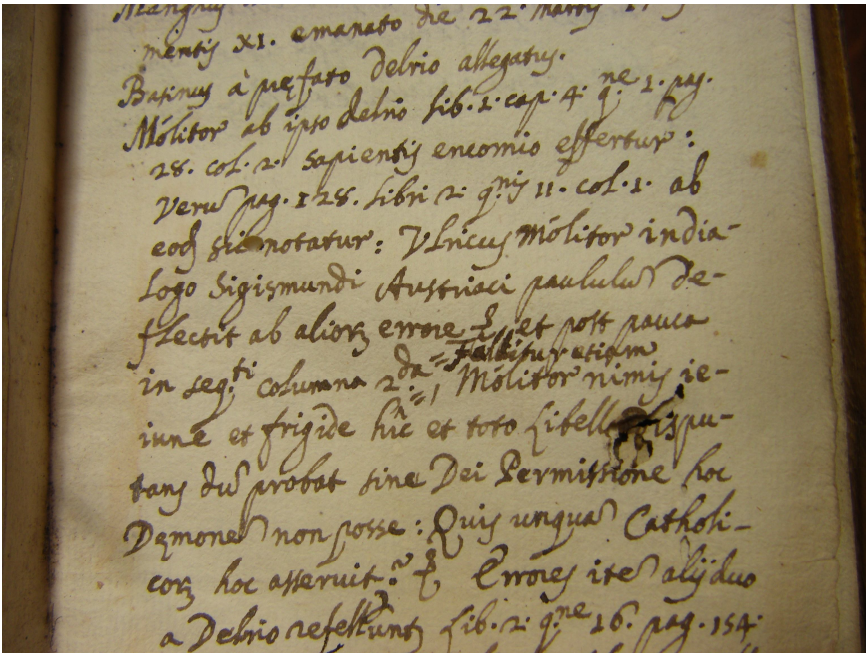 mentis XI. emanato die 22. martis
Basinus à pręfato delrio allegatus.
Mólitor ab ipso delrio lib. 2. cap. 4. q.ne 1. pag.
28. col. 2. sapientis encomio effertur:
Verũ pag. 128. libri 2. q.nis 11. col. 1. ab
eodꝫ sic notatur: Vlricus Mólitor in dia-
logo Sigismundi Austriaci paululũ de-
flectit ab aliorꝫ errore et post pauca
in seq.ti columna 2.da = Fallitur etiam
Mólitor nimis ie-
iune et frigide hic et toto Libello dispu-
tans dũ probat sine Dei Permissione hoc
Dęmone non posse: Quis unquã Catholi-
corꝫ hoc asseruit? Errores itẽ alij duo
a Delrio refelluntꝫ Lib. 2. q.ne 16. pag. 154.